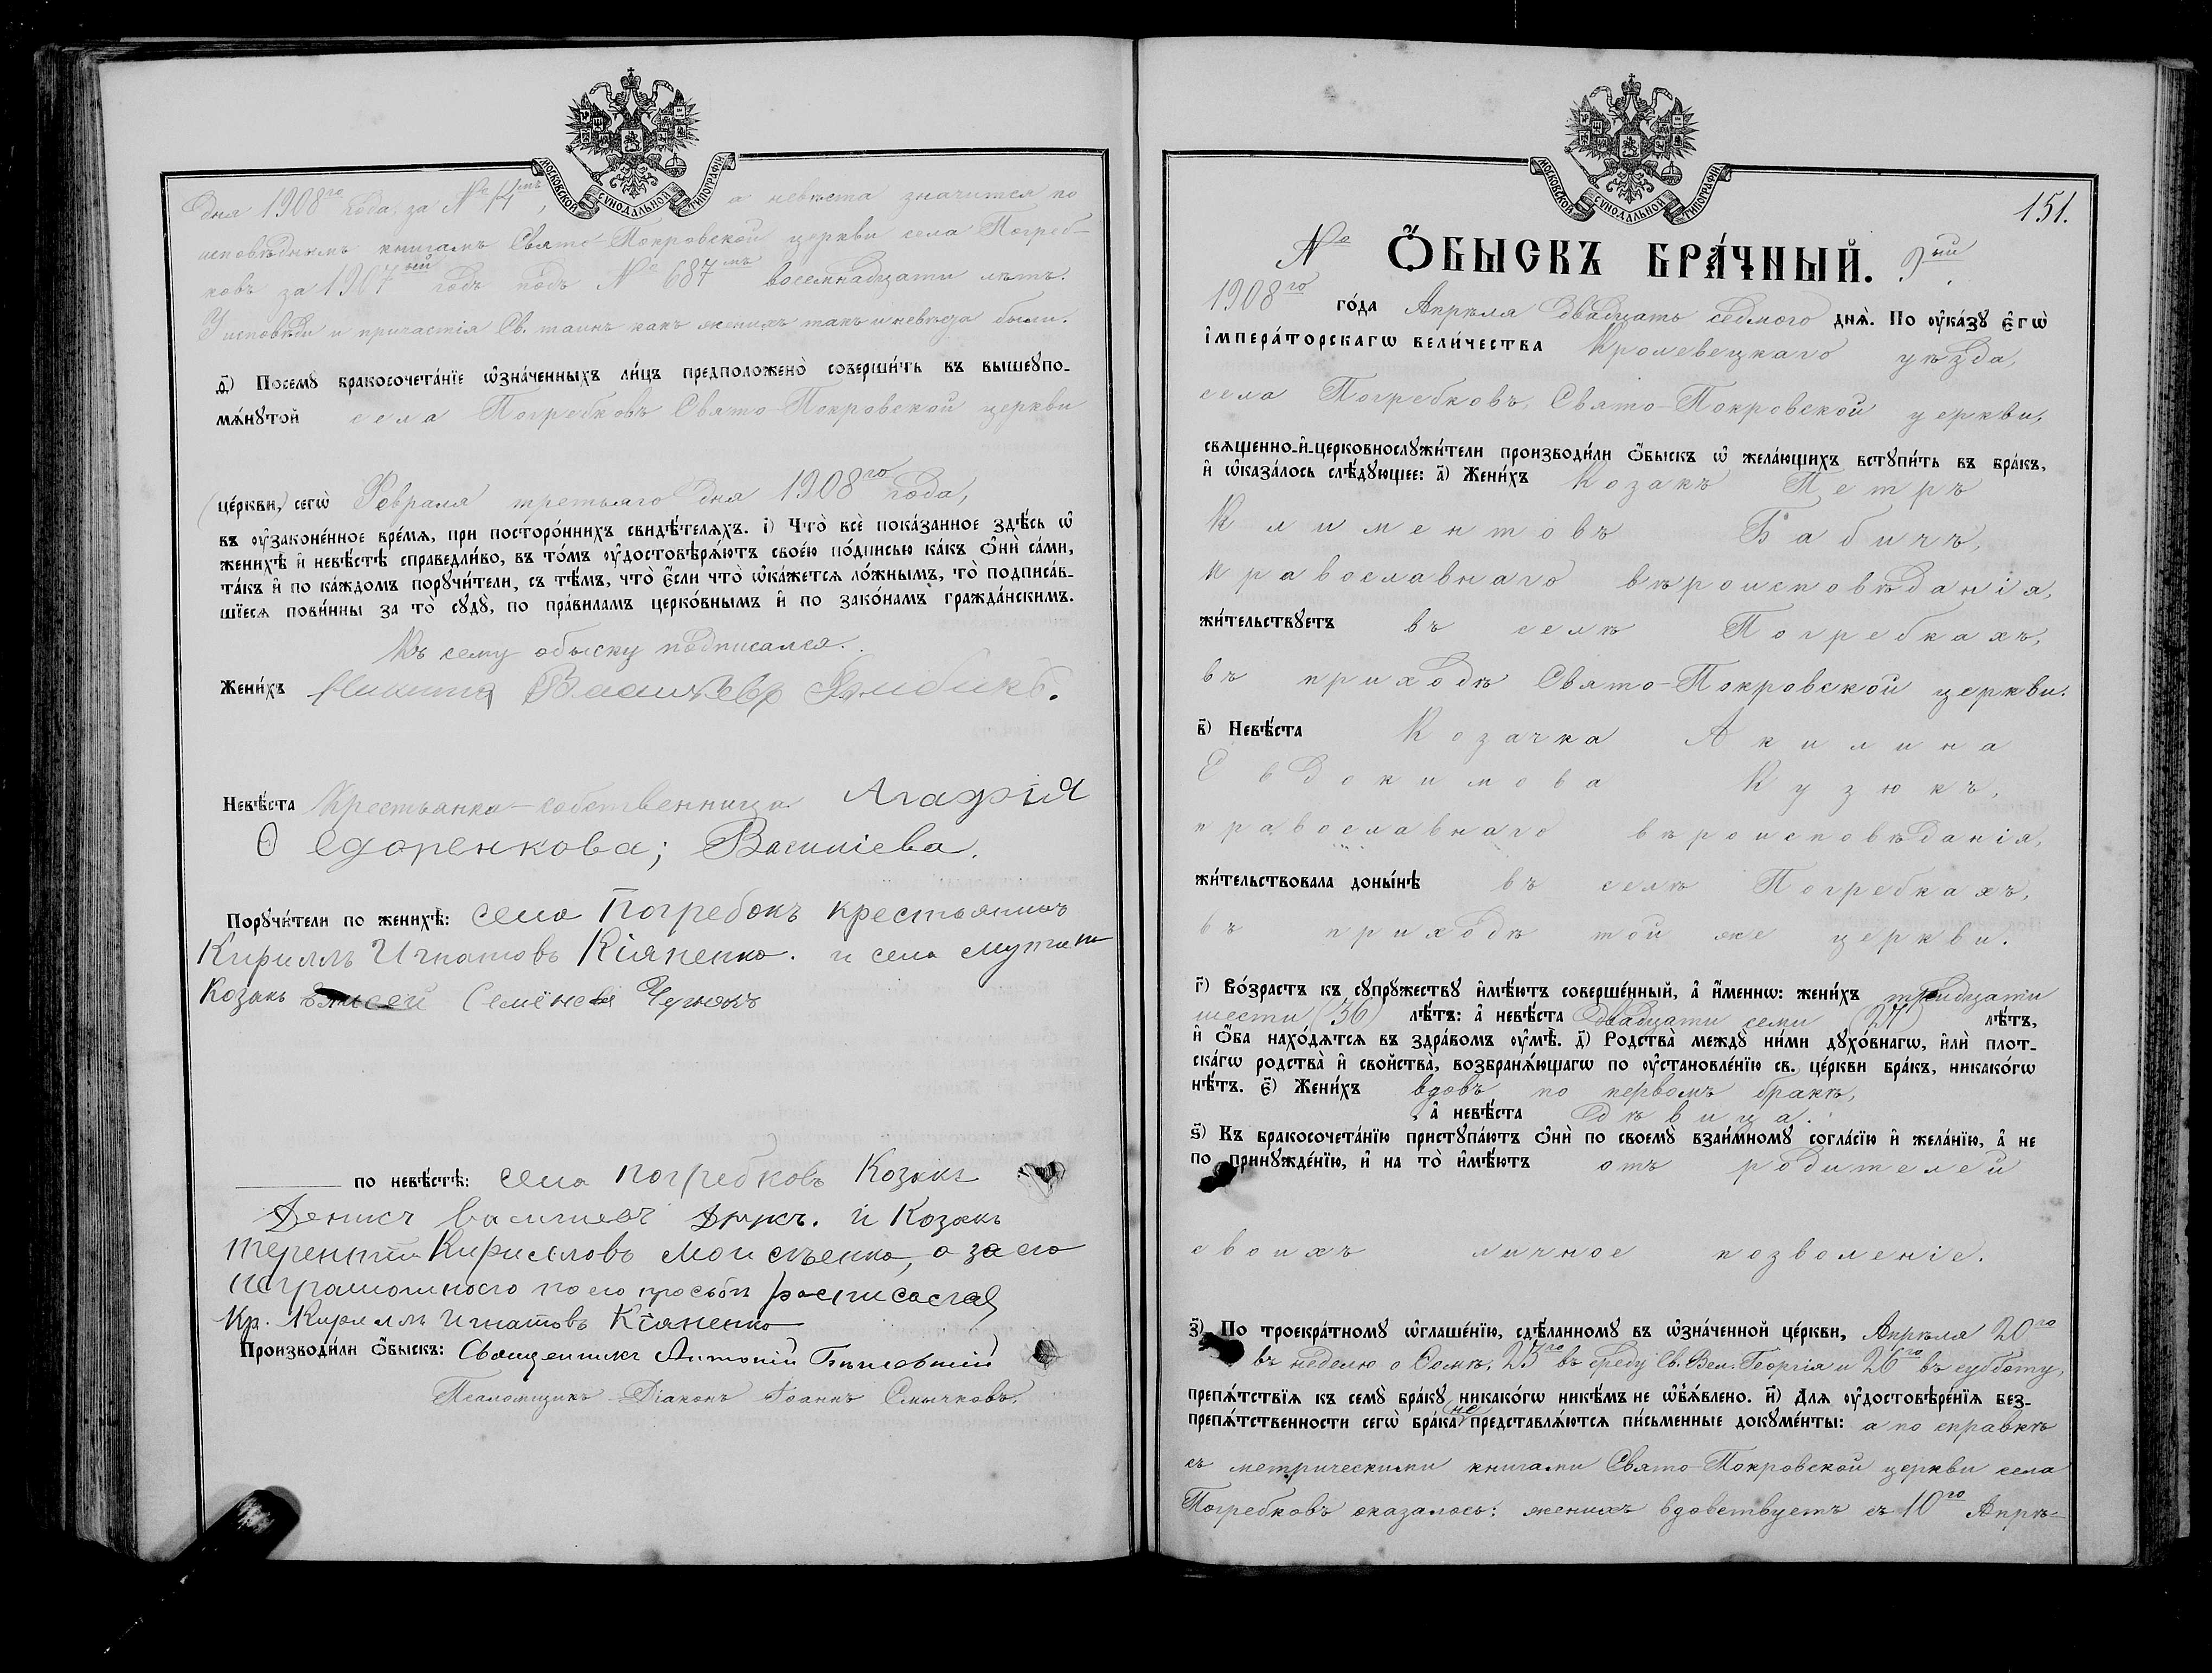 МОСКОВСКОЙ СѴНОДАЛЬНОЙ ТИПОГРАФІИ
дня 1908го года, за № 14мъ, а невѣста значится по
исповѣднымъ книгамъ Свято-Покровской церкви села Погреб-
ковъ за 1907ый годъ подъ № 687мъ восемнадцати лѣтъ.
У исповѣди и причастія Св. таинъ какъ женихъ такъ и невѣста были.
ѳ҃) Посемꙋ бракосочета́нїе ѡ҆зна́ченныхъ ли́цъ предположено̀ соверши́ть въ вышеꙋпо-
мѧ́нꙋтой села Погребковъ Свято-Покровской церкви
(це́ркви,) сегѡ̀ Февраля третьяго дня 1908го года,
въ ᲂу҆законе́нное вре́мѧ, при посторо́ннихъ свидѣ́телѧхъ. і҃) Что̀ всѐ пока́занное здѣ́сь ѡ҆
женихѣ̀ и҆ невѣ́стѣ справедли́во, въ то́мъ ᲂу҆достовѣрѧ́ютъ свое́ю по́дписью ка́къ ѻ҆нѝ са́ми,
та́къ и҆ по ка́ждомъ порꙋчи́тели, съ тѣ́мъ, что̀ є҆́сли что̀ ѡ҆ка́жетсѧ ло́жнымъ, то̀ подписа́в-
шїесѧ пови́нны за то̀ сꙋдꙋ̀, по пра́виламъ церко́внымъ и҆ по зако́намъ гражда́нскимъ.
Къ сему обыску подписался.
Жени́хъ Никита Васильевъ
Невѣ́ста Крестьянка-собственница Агафія
Ѳедоренкова; Василіева.
Порꙋчи́тели по женихѣ̀: села Погребокъ крестьянинъ
Кириллъ Игнатовъ Кіяненко. и села
Козакъ Семёновъ
по невѣ́стѣ: села Погребковъ Козакъ
Денисъ Васильевъ и Козакъ
Терентій Кириловъ Моисѣенко, а за его
неграмотного по его просьбѣ росписался
Кр. Кириллъ Игнатовъ Кіяненко
Производи́ли ѻ҆́быскъ: Священникъ Антоній
Псаломщикъ Діаконъ Іоаннъ Смычковъ.
МОСКОВСКОЙ СѴНОДАЛЬНОЙ ТИПОГРАФІИ
151.
№ Ѻ҆́БЫСКЪ БРА́ЧНЫЙ. 9ый.
1908го го́да Апрѣля двадцать седмого днѧ̀. По ᲂу҆ка́зꙋ є҆гѡ̀
і҆мпера́торскагѡ вели́чества Кролевецкаго уѣзда,
села Погребковъ, Свято-Покровской церкви,
свѧщенно-и҆-церковнослꙋжи́тели производи́ли ѻ҆́быскъ ѡ҆ жела́ющихъ встꙋпи́ть въ бра́къ,
и҆ ѡ҆каза́лось слѣ́дꙋющее: а҃) Жени́хъ Козакъ Петръ
Климентовъ Бабичъ,
православнаго вѣроисповѣданія,
жи́тельствꙋетъ въ селѣ Погребкахъ,
въ приходѣ Свято-Покровской церкви.
в҃) Невѣ́ста Козачка Акилина
Евдокимова Кузюкъ,
православнаго вѣроисповѣданія,
жи́тельствовала доны́нѣ въ селѣ Погребкахъ,
въ приходѣ той же церкви.
г҃) Во́зрастъ къ сꙋпрꙋжествꙋ и҆мѣ́ютъ соверше́нный, а҆ и҆́меннѡ: жени́хъ тридцати
шести (36) лѣ́тъ: а҆ невѣ́ста двадцати семи (27) лѣ́тъ,
и҆ ѻ҆́ба нахо́дѧтсѧ въ здра́вомъ ᲂу҆мѣ̀. д҃) Родства̀ междꙋ̀ ни́ми дꙋхо́внагѡ, и҆лѝ плот-
ска́гѡ родства̀ и҆ свойства̀, возбранѧ́ющагѡ по ᲂу҆становле́нїю св. це́ркви бра́къ, никако́гѡ
нѣ́тъ. є҃) Жени́хъ вдовъ по первомъ бракѣ,
, а҆ невѣ́ста дѣвица.
ѕ҃) Къ бракосочета́нїю пристꙋпа́ютъ ѻ҆нѝ по своемꙋ̀ взаи́мномꙋ согла́сїю и҆ жела́нїю, а҆ не
по принꙋжде́нїю, и҆ на то̀ и҆мѣ́ютъ отъ родителей
своихъ личное позволеніе.
з҃) По троекра́тномꙋ ѡ҆глаше́нїю, сдѣ́ланномꙋ въ ѡ҆зна́ченной це́ркви, Апрѣля 20го
въ неделю о Ѳомѣ, 23го въ среду Св. Вел. Георгія и 26го въ субботу,
препѧ́тствїѧ къ семꙋ̀ бра́кꙋ никако́гѡ никѣ́мъ не ѡ҆б̾ѧ́влено. и҃) Длѧ ᲂу҆достовѣре́нїѧ без-
препѧ́тственности сегѡ̀ бра́ка не представлѧ́ютсѧ пи́сьменные докꙋме́нты: а по справкѣ
съ метрическими книгами Свято-Покровской церкви села
Погребковъ оказалось: женихъ вдовствуетъ съ 10го Апрѣ-